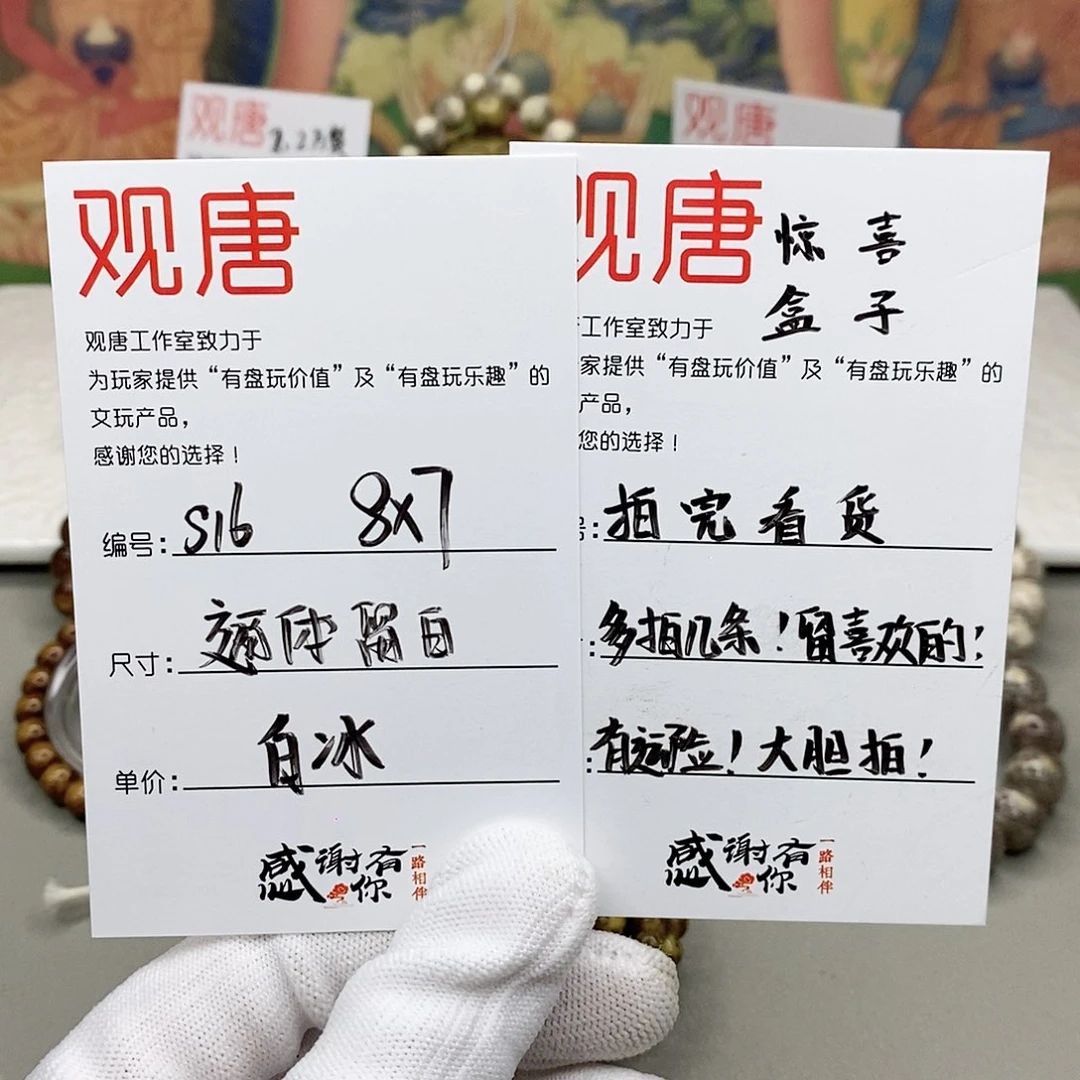 观唐
观唐工作室致力于
为玩家提供“有盘玩价值”及“有盘玩乐趣”的
文玩产品，
感谢您的选择！
编号：S16 8x7
尺寸：通体留白
单价：白冰
感谢有你
一路相伴
观唐
惊喜
盒子
工作室致力于
家提供“有盘玩价值”及“有盘玩乐趣”的
产品，
您的选择！
：拍完看货
：多拍几条！留喜欢的！
：有运险！大胆拍！
感谢有你
一路相伴
观唐
观唐